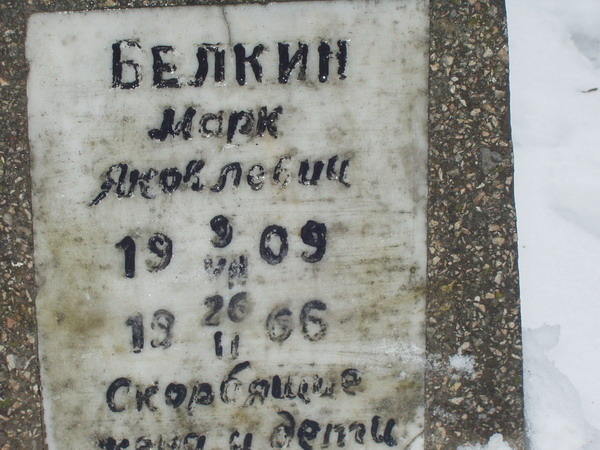 БЕЛКИН
Марк
Яковлевич
19 9/VII 09
19 26/II 66
Скорбящие
жена и дети